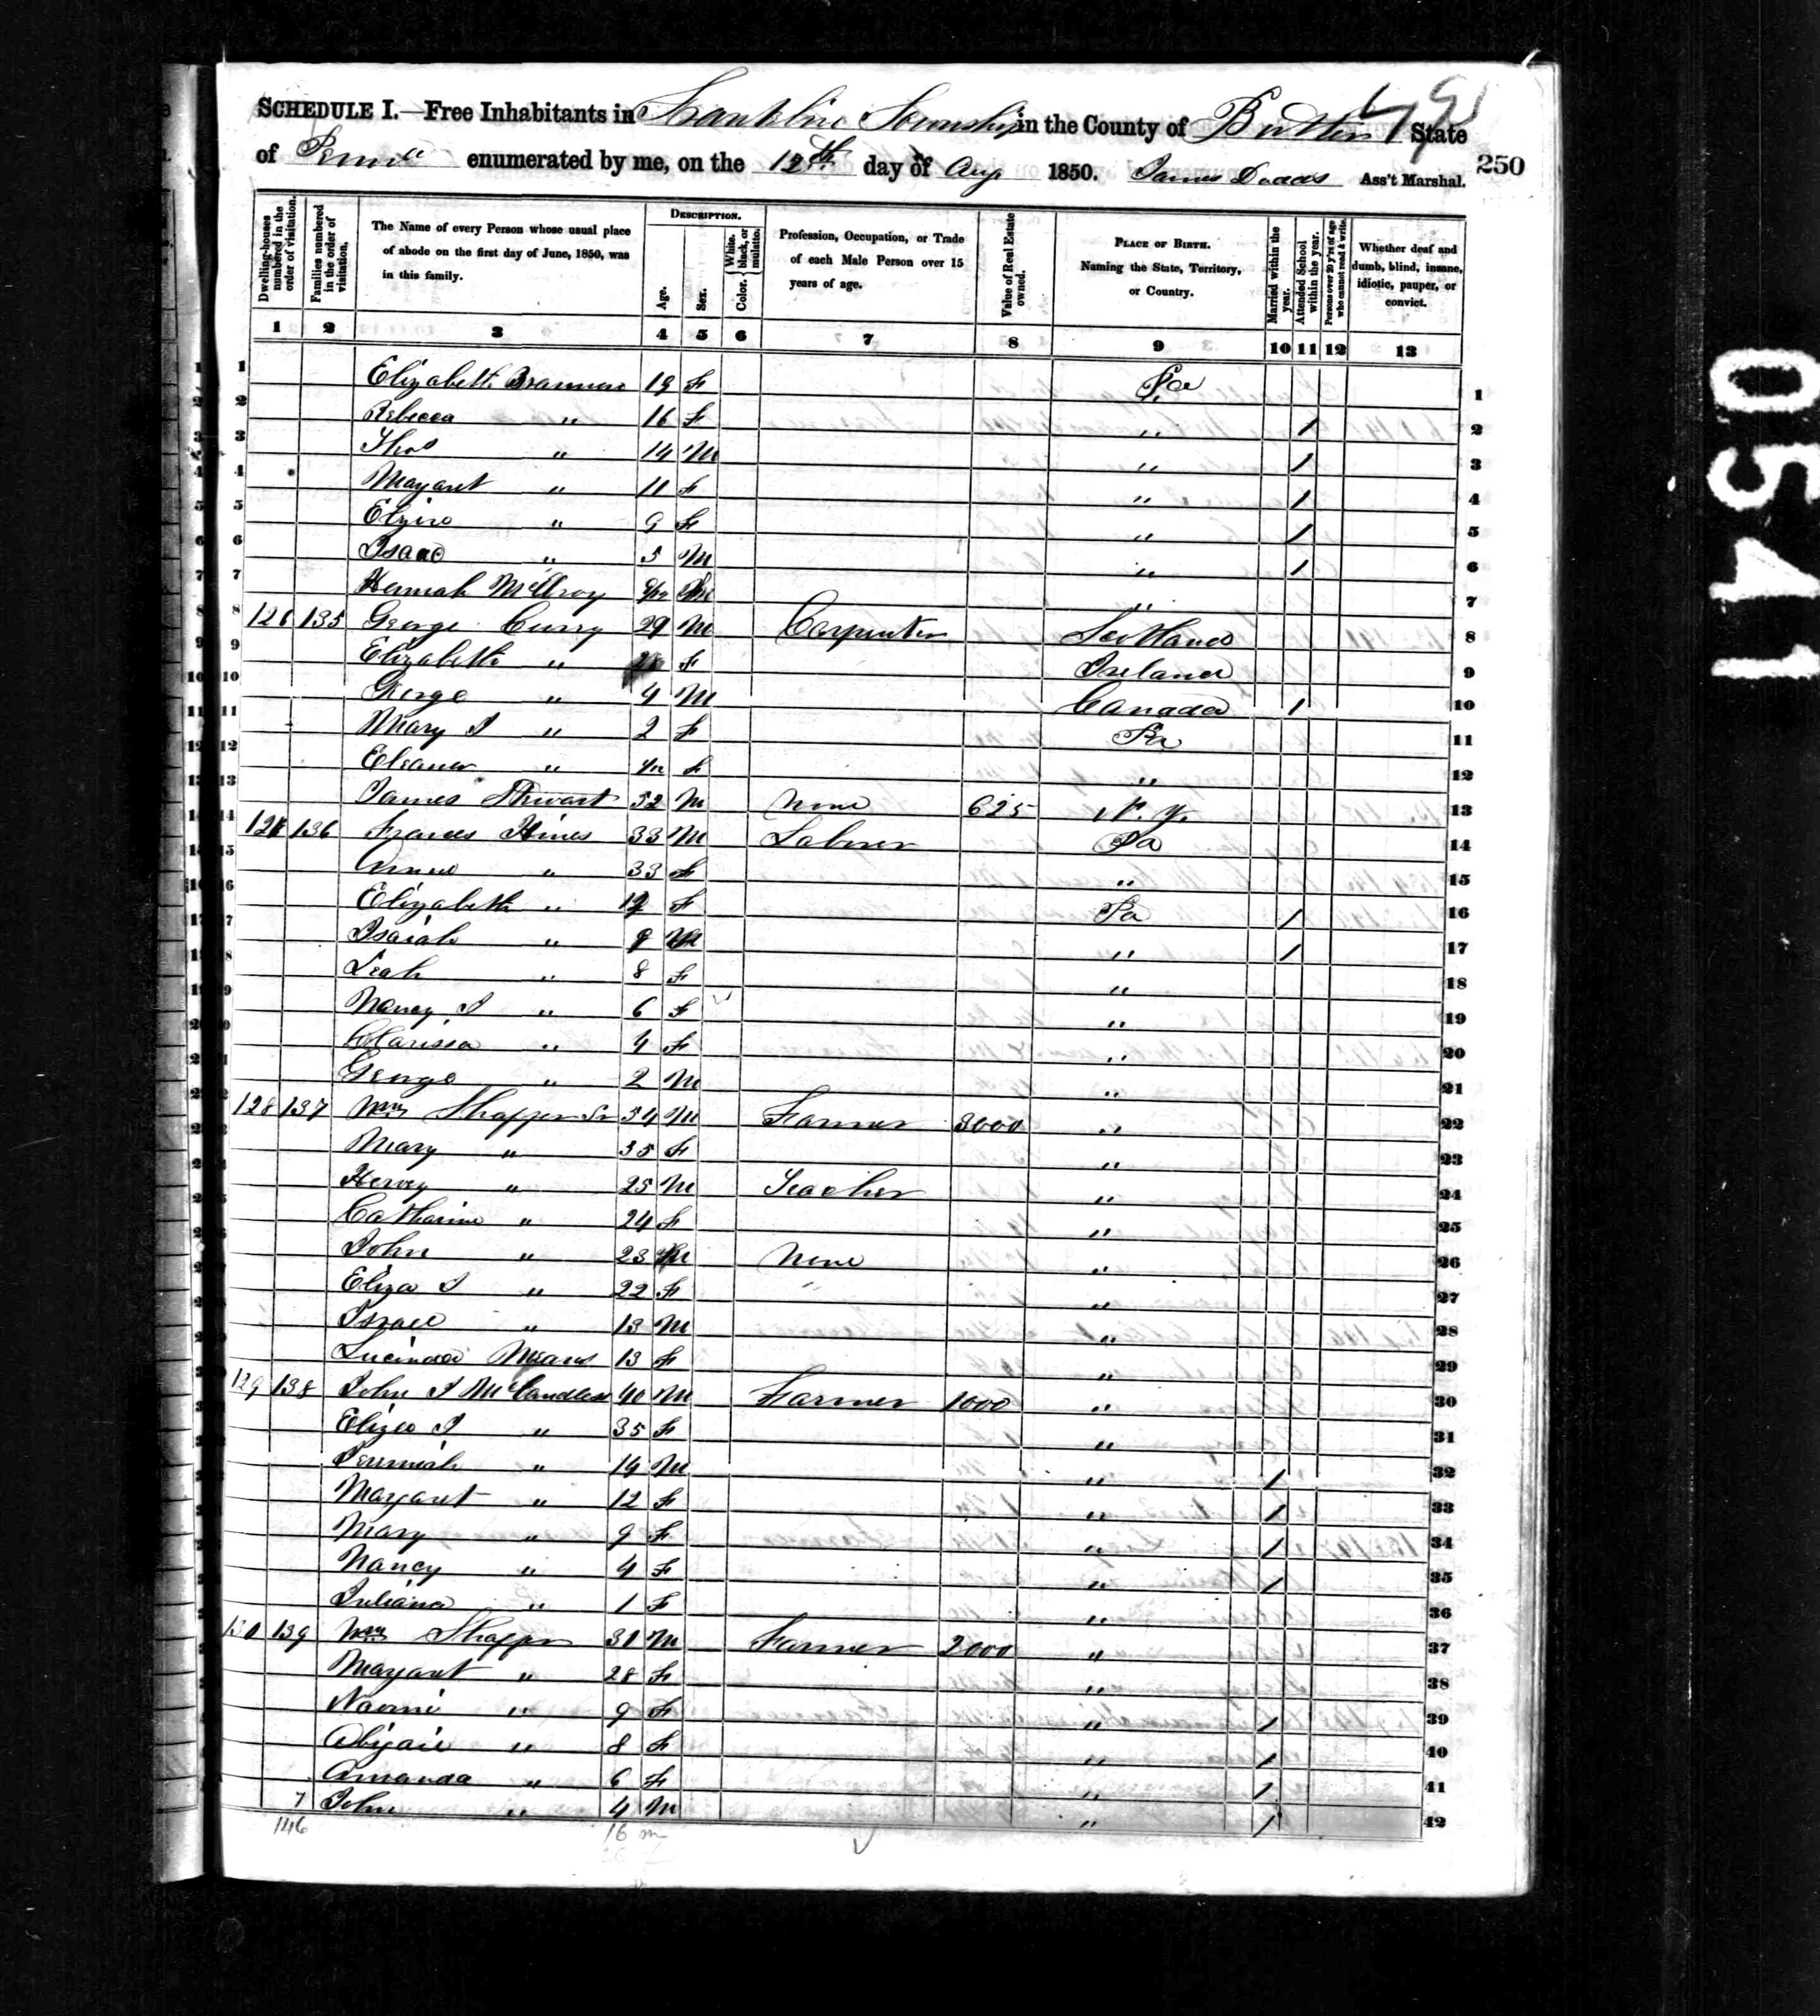 SCHEDULE I.—Free Inhabitants in Franklin Township in the County of Butler State
of Penna enumerated by me, on the 12th day of Aug 1850. James Dodds Ass't Marshal. 250
Dwelling-houses numbered in the order of visitation.
Families numbered in the order of visitation.
The Name of every Person whose usual place of abode on the first day of June, 1850, was in this family.
DESCRIPTION.
Age.
Sex.
Color. White, black, or mulatto.
Profession, Occupation, or Trade of each Male Person over 15 years of age.
Value of Real Estate owned.
PLACE OF BIRTH. Naming the State, Territory, or Country.
Married within the year.
Attended School within the year.
Persons over 20 y'rs of age who cannot read & write.
Whether deaf and dumb, blind, insane, idiotic, pauper, or convict.
1 2 3 4 5 6 7 8 9 10 11 12 13
1 Elizabeth 19 F Pa 1
2 Rebecca " 16 F " / 2
3 Thos " 14 M " / 3
4 Margaret " 11 F " / 4
5 Eliza " 9 F " / 5
6 Isaac " 5 M " / 6
7 Hannah McElroy " 7
8 126 135 George Curry 29 M Carpenter Scotland 8
9 Elizabeth " F Ireland 9
10 George " 4 M Canada / 10
11 Mary J " 2 F Pa 11
12 Eleanor " F " 12
13 James Stewart 52 M None 625 N.Y. 13
14 127 136 Frances Hines 33 M Laborer Pa 14
15 Anne " 33 F " 15
16 Elizabeth " 12 F Pa / 16
17 Isaiah " 9 M " / 17
18 Leah " 8 F " 18
19 Nancy J " 6 F " 19
Clarissa " 4 F " 20
George " 2 M " 21
128 137 Wm Shaffer Sr 54 M Farmer 3000 " 22
Mary " 35 F " 23
Hervey " 25 M Teacher " 24
Catharine " 24 F " 25
John " 23 M None " 26
Eliza J " 22 F " 27
Israel " 13 M " 28
Lucinda Means 13 F " 29
129 138 John J McCandless 40 M Farmer 1000 " 30
Eliza J " 35 F " 31
Jeremiah " 14 M " / 32
Margaret " 12 F " / 33
Mary " 9 F " / 34
Nancy " 4 F " / 35
Juliana " 1 F " 36
130 139 Wm Shaffer 31 M Farmer 2000 " 37
Margaret " 28 F " 38
Naomi " 9 F " / 39
Abigail " 8 F " / 40
Amanda " 6 F " / 41
7 John " 4 M " / 42
146 16 m
0541